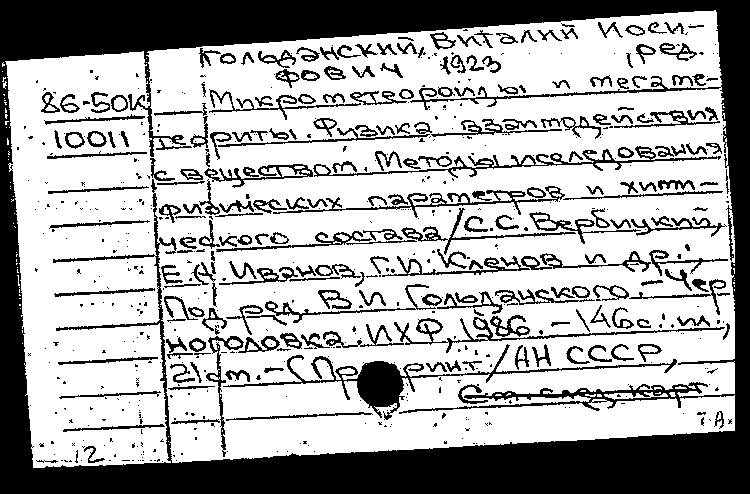 Гольданский, Виталий Иоси-
фович 1923 , ред.
86-50К Микрометеороиды и мегаме-
10011 теориты. Физика взаимодействия
с веществом. Методы исследования
физических параметров и хими-
ческого состава / С.С. Вербицкий,
Е.А. Иванов, Г.И. Кленов и др.;
Под ред. В.И. Гольданского. - Чер
ноголовка: ИХФ, 1986. - 146с.: ил.;
21 см. - (Пр ринт / АН СССР,
См. след. карт.
Т.А.
12